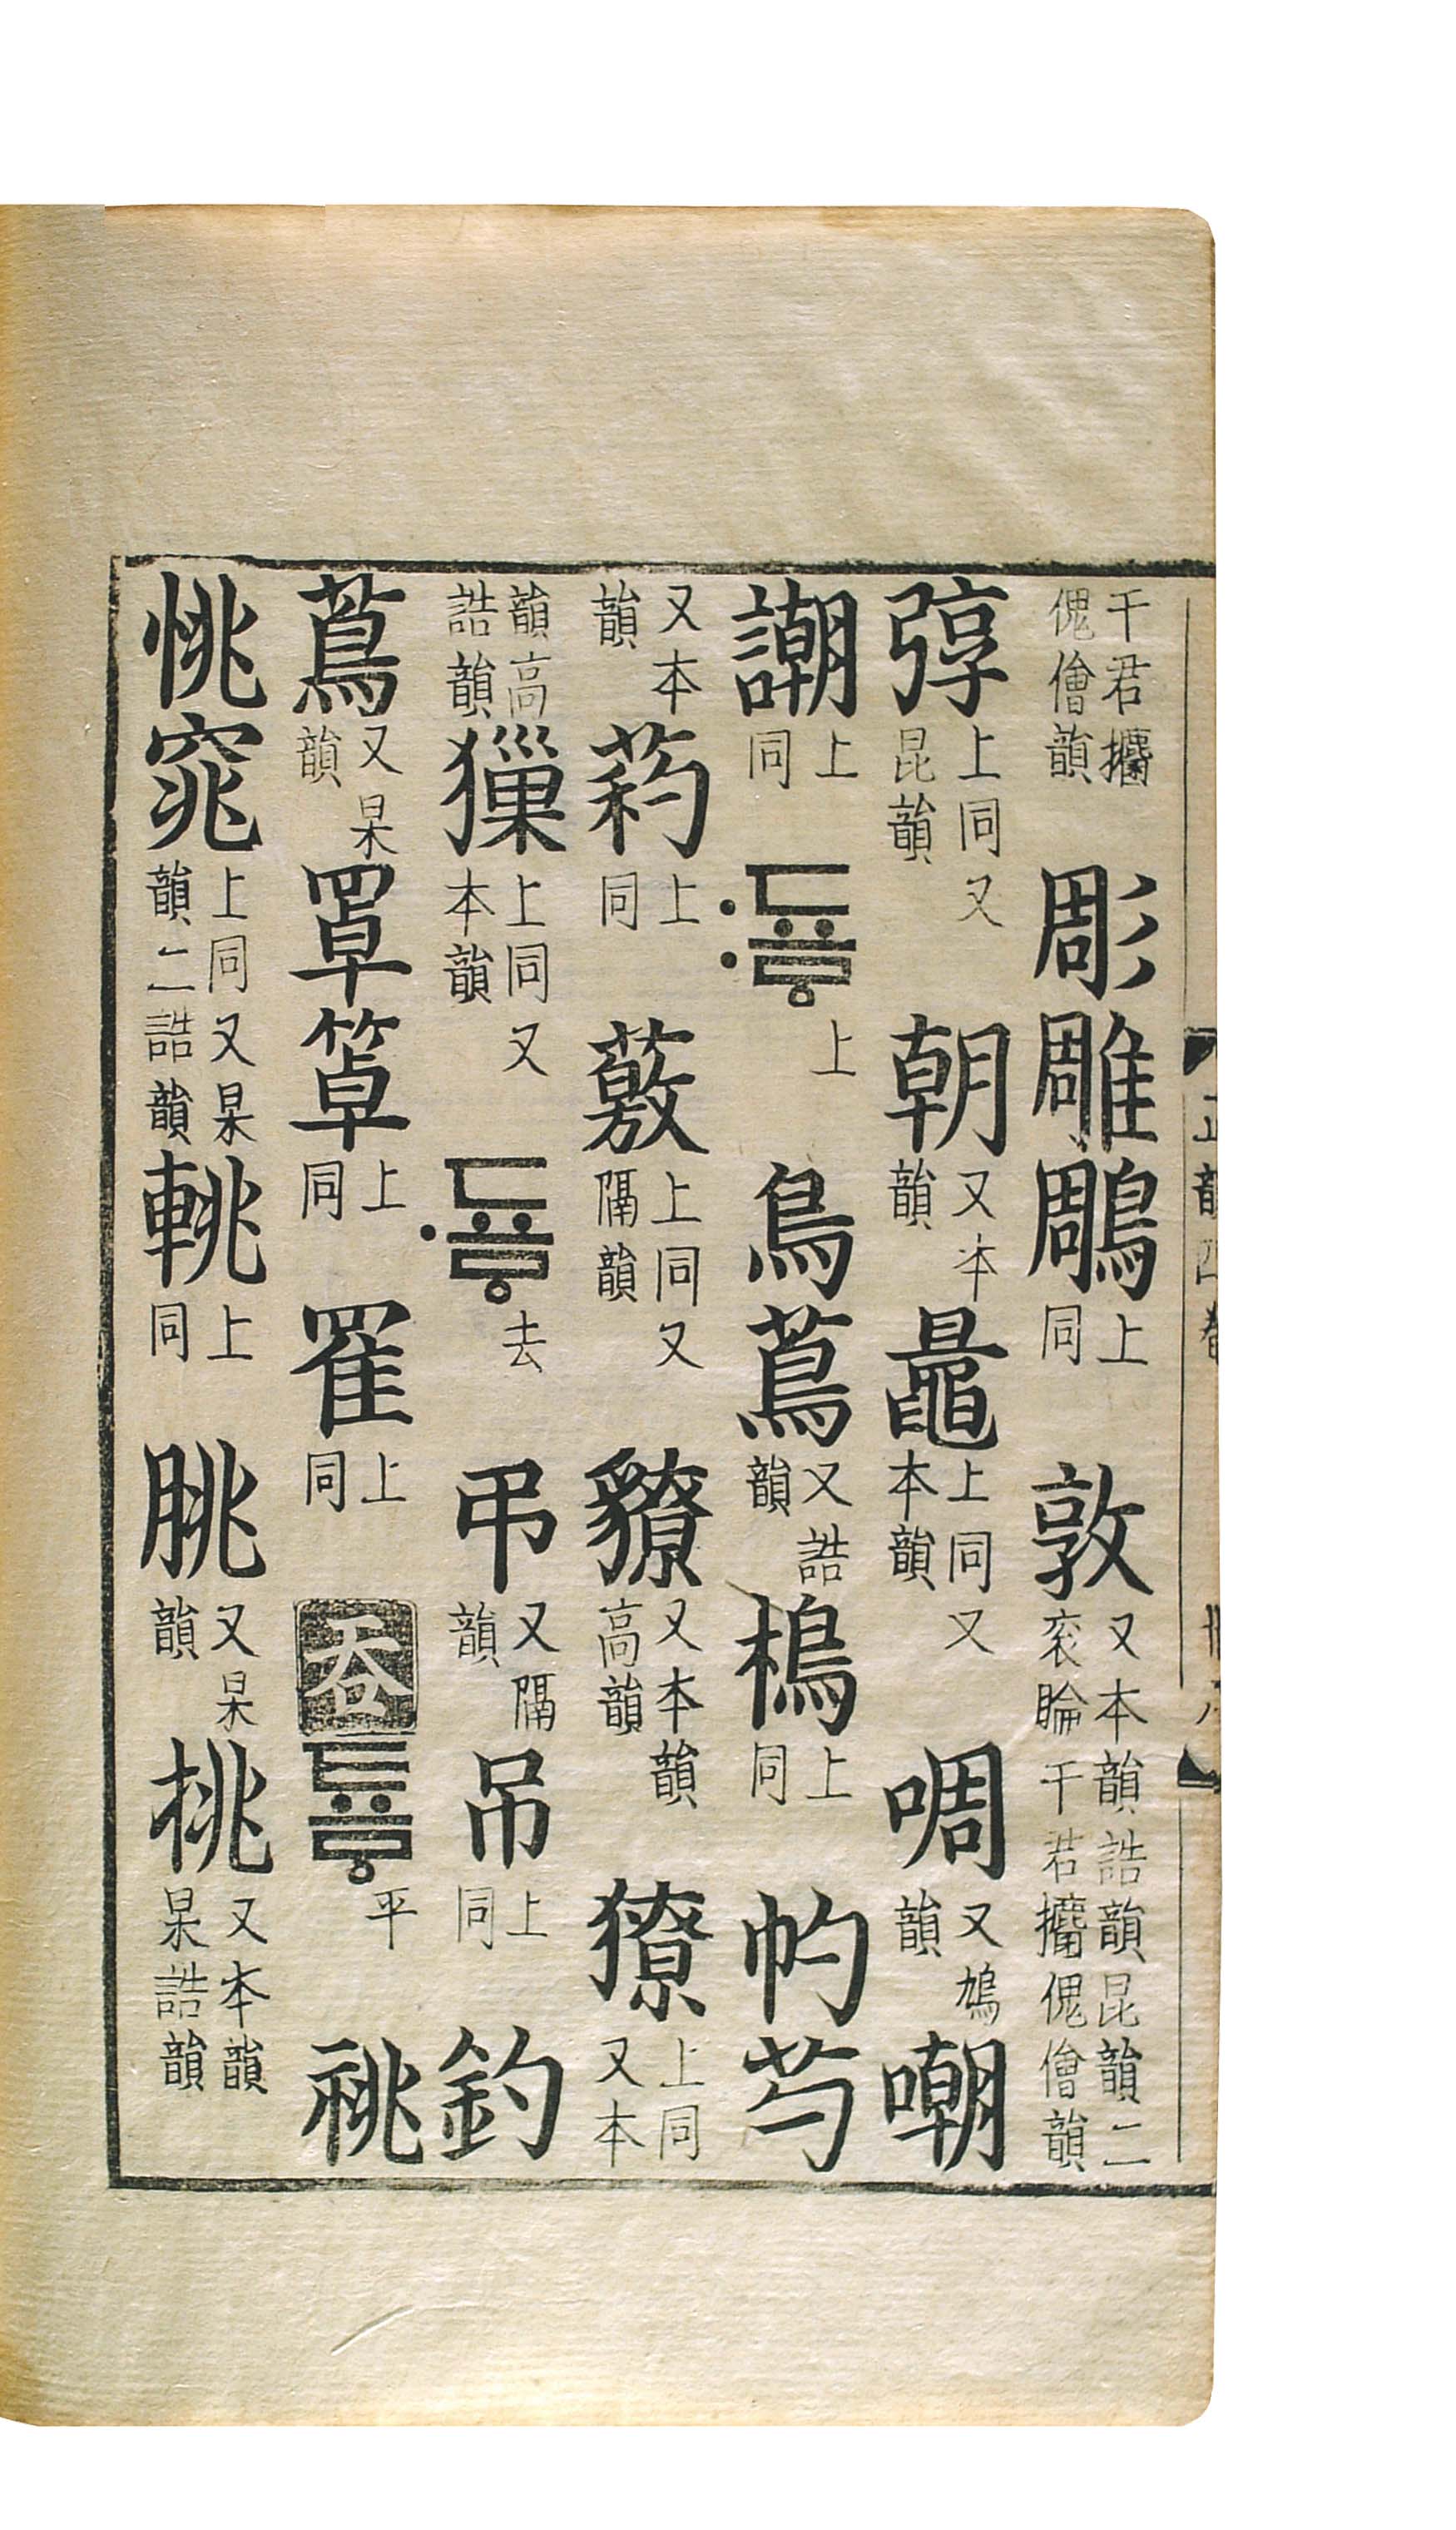 干君攟傀儈韻彫雕鵰上同敦又本韻誥韻昆韻二衮睔干君攟傀儈韻
弴上同又昆韻朝又本韻鼂上同又本韻啁又鳩韻嘲
謿上同〯됴ᇢ上鳥蔦又誥韻樢上同芍
又本韻上同薂上同又隔韻䝤又本韻高韻獠上同又本
韻高誥韻上同又本韻〮됴ᇢ去弔又隔韻吊上同釣
蔦又杲韻罩上同上同呑툐ᇢ平祧
恌窕上同又杲韻二誥韻上同朓又杲韻桃又本韻杲誥韻